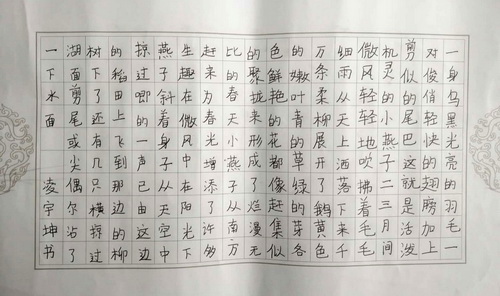 一身乌黑光亮的羽毛一
对俊俏轻快的翅膀加上
剪似的尾巴这就是活泼
机灵的小燕子二三月间
微风轻轻地吹拂着毛毛
细雨从天上洒落下来千
万条柔柳展开了鹅黄色
的嫩叶青的草绿的芽各
色鲜艳的花都像赶集似
的聚拢来形成了烂漫无
比的春天小燕子从南方
赶来为春光增添了许多
生趣在微风中在阳光下
燕子斜着身子从天空中
掠过唧的一声已由这边
的稻田上飞到那边的柳
树下了还有几只横掠过
湖面剪尾或尖偶尔沾了
一下水面 凌宇坤书